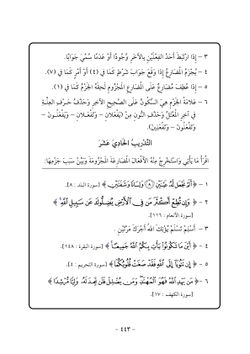 ٣ – إذَا ارْتَبَطَ أَحَدُ الفِعْلَيْنِ بِالآخَرِ وُجُودًا أَوْ عَدَمًا سُمِّيَ جَوَابًا.
٤ – يُجْزَمُ الْمُضَارِعُ إِذَا وَقَعَ جَوَابَ شَرْطٍ كَمَا فِي (٤) أَوْ أَمْرٍ كَمَا فِي (٧).
٥ – إِذَا عُطِفَ مُضَارِعٌ عَلَى الْمُضَارِعِ الْمَجْزُومِ لَحِقَهُ الْجَزْمُ كَمَا فِي (١).
٦ – عَلَامَةُ الْجَزْمِ هِيَ السُّكُونُ عَلَى الصَّحِيحِ الآخِرِ وَحَذْفُ حَرْفِ العِلَّةِ
فِي آخِرِ الْمُعْتَلِّ وَحَذْفُ النُّونِ مِنْ (يَفْعَلَانِ – وَتَفْعَلَانِ – وَيَفْعَلُونَ –
وَتَفْعَلُونَ – وَتَفْعَلِينَ).
التَّدْرِيبُ الْحَادِيَ عَشَرَ
اقْرَأْ مَا يَأْتِي وَاسْتَخْرِجْ مِنْهُ الأَفْعَالَ الْمُضَارِعَةَ الْمَجْزُومَةَ وَبَيِّنْ سَبَبَ جَزْمِهَا:
١ – ﴿ أَلَمْ نَجْعَل لَّهُ عَيْنَيْنِ (٨) وَلِسَانًا وَشَفَتَيْنِ ﴾ [سورة البلد : ٨].
٢ – ﴿ وَإِن تُطِعْ أَكْثَرَ مَن فِي الْأَرْضِ يُضِلُّوكَ عَن سَبِيلِ اللَّهِ ﴾
[سورة الأنعام : ١١٦].
٣ – أَسْلِمْ تَسْلَمْ يُؤْتِكَ اللهُ أَجْرَكَ مَرَّتَيْنِ .
٤ – ﴿ أَيْنَ مَا تَكُونُوا يَأْتِ بِكُمُ اللَّهُ جَمِيعًا ﴾ [سورة البقرة : ١٤٨].
٥ – ﴿ إِن تَتُوبَا إِلَى اللَّهِ فَقَدْ صَغَتْ قُلُوبُكُمَا ﴾ [سورة التحريم : ٤].
٦ – ﴿ مَن يَهْدِ اللَّهُ فَهُوَ الْمُهْتَدِ وَمَن يُضْلِلْ فَلَن تَجِدَ لَهُ وَلِيًّا مُّرْشِدًا ﴾
[سورة الكهف : ١٧].
– ٤٤٣ –